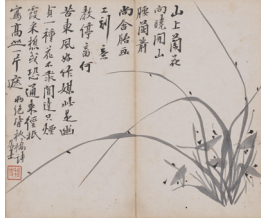 山上蘭花
向曉開山
腰蘭箭
尚含胎畫
工刻意
教停蓄何
苦東風好作媒此是幽
貞一種花不求聞達只煙
霞采樵或恐通來徑
寫高山一片遮